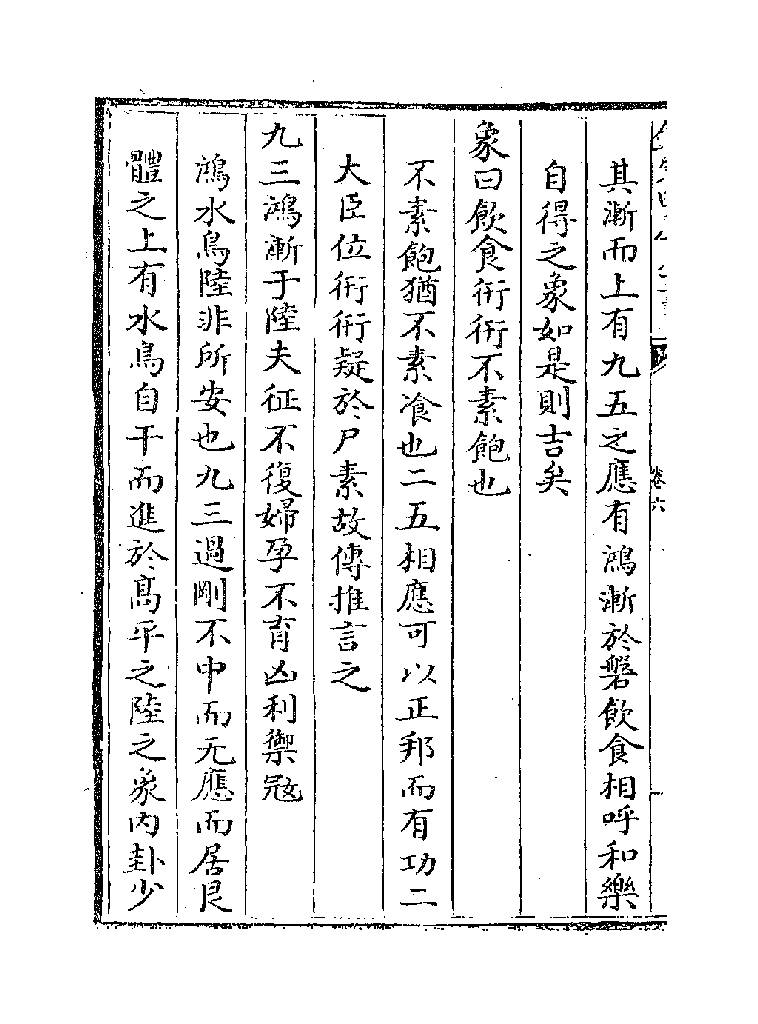 其漸而上有九五之應有鴻漸於磐飲食相呼和樂
自得之象如是則吉矣
象曰飲食衎衎不素飽也
不素飽猶不素飡也二五相應可以正邦而有功二
大臣位衎衎疑於尸素故傳推言之
九三鴻漸于陸夫征不復婦孕不育凶利禦㓂
鴻水鳥陸非所安也九三過剛不中而无應而居艮
體之上有水鳥自干而進於髙平之陸之象内卦少
卷六